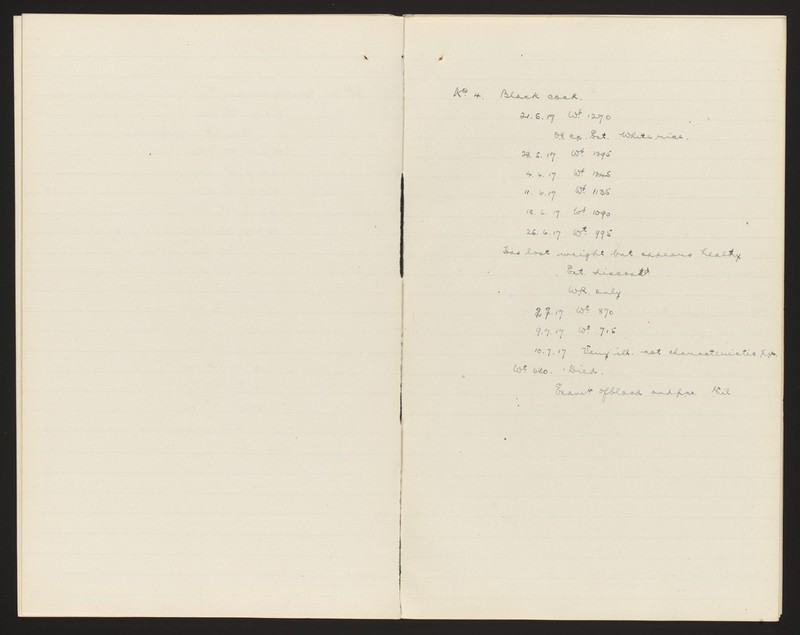 No 4. Black cock.
21.5.17 Wt 1270
Ext. White rice.
28.5.17 Wt 1295
4.6.17 Wt 1245
11.6.17 Wt 1135
18.6.17 Wt 1090
25.6.17 Wt 995
Has lost weight but appears healthy
Ext. discontd
W.R. only
2.7.17 Wt 870
9.7.17 Wt 715
10.7.17 Very ill. not characteristic
Wt Died.
Examt of blood and Nil